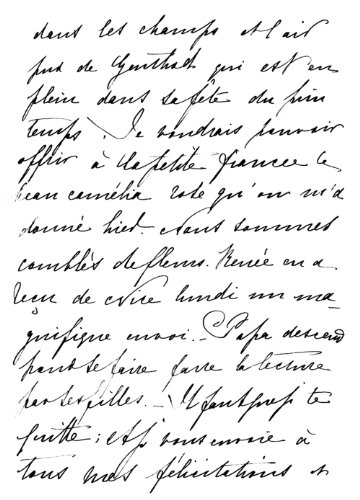 dans les champs et l'air
pur de Genthod qui est en
plein dans sa fête du prin
temps. Je voudrais pouvoir
offrir à la petite fiancée le
beau camélia rosé qu'on m'a
donné hier. Nous sommes
comblés de fleurs. Renée en a
reçu de Nice lundi un ma
gnifique envoi. _ Papa descend
pour se faire faire la lecture
par ses filles. _ Il faut que je te
quitte ; et je vous envoie à
tous mes félicitations et